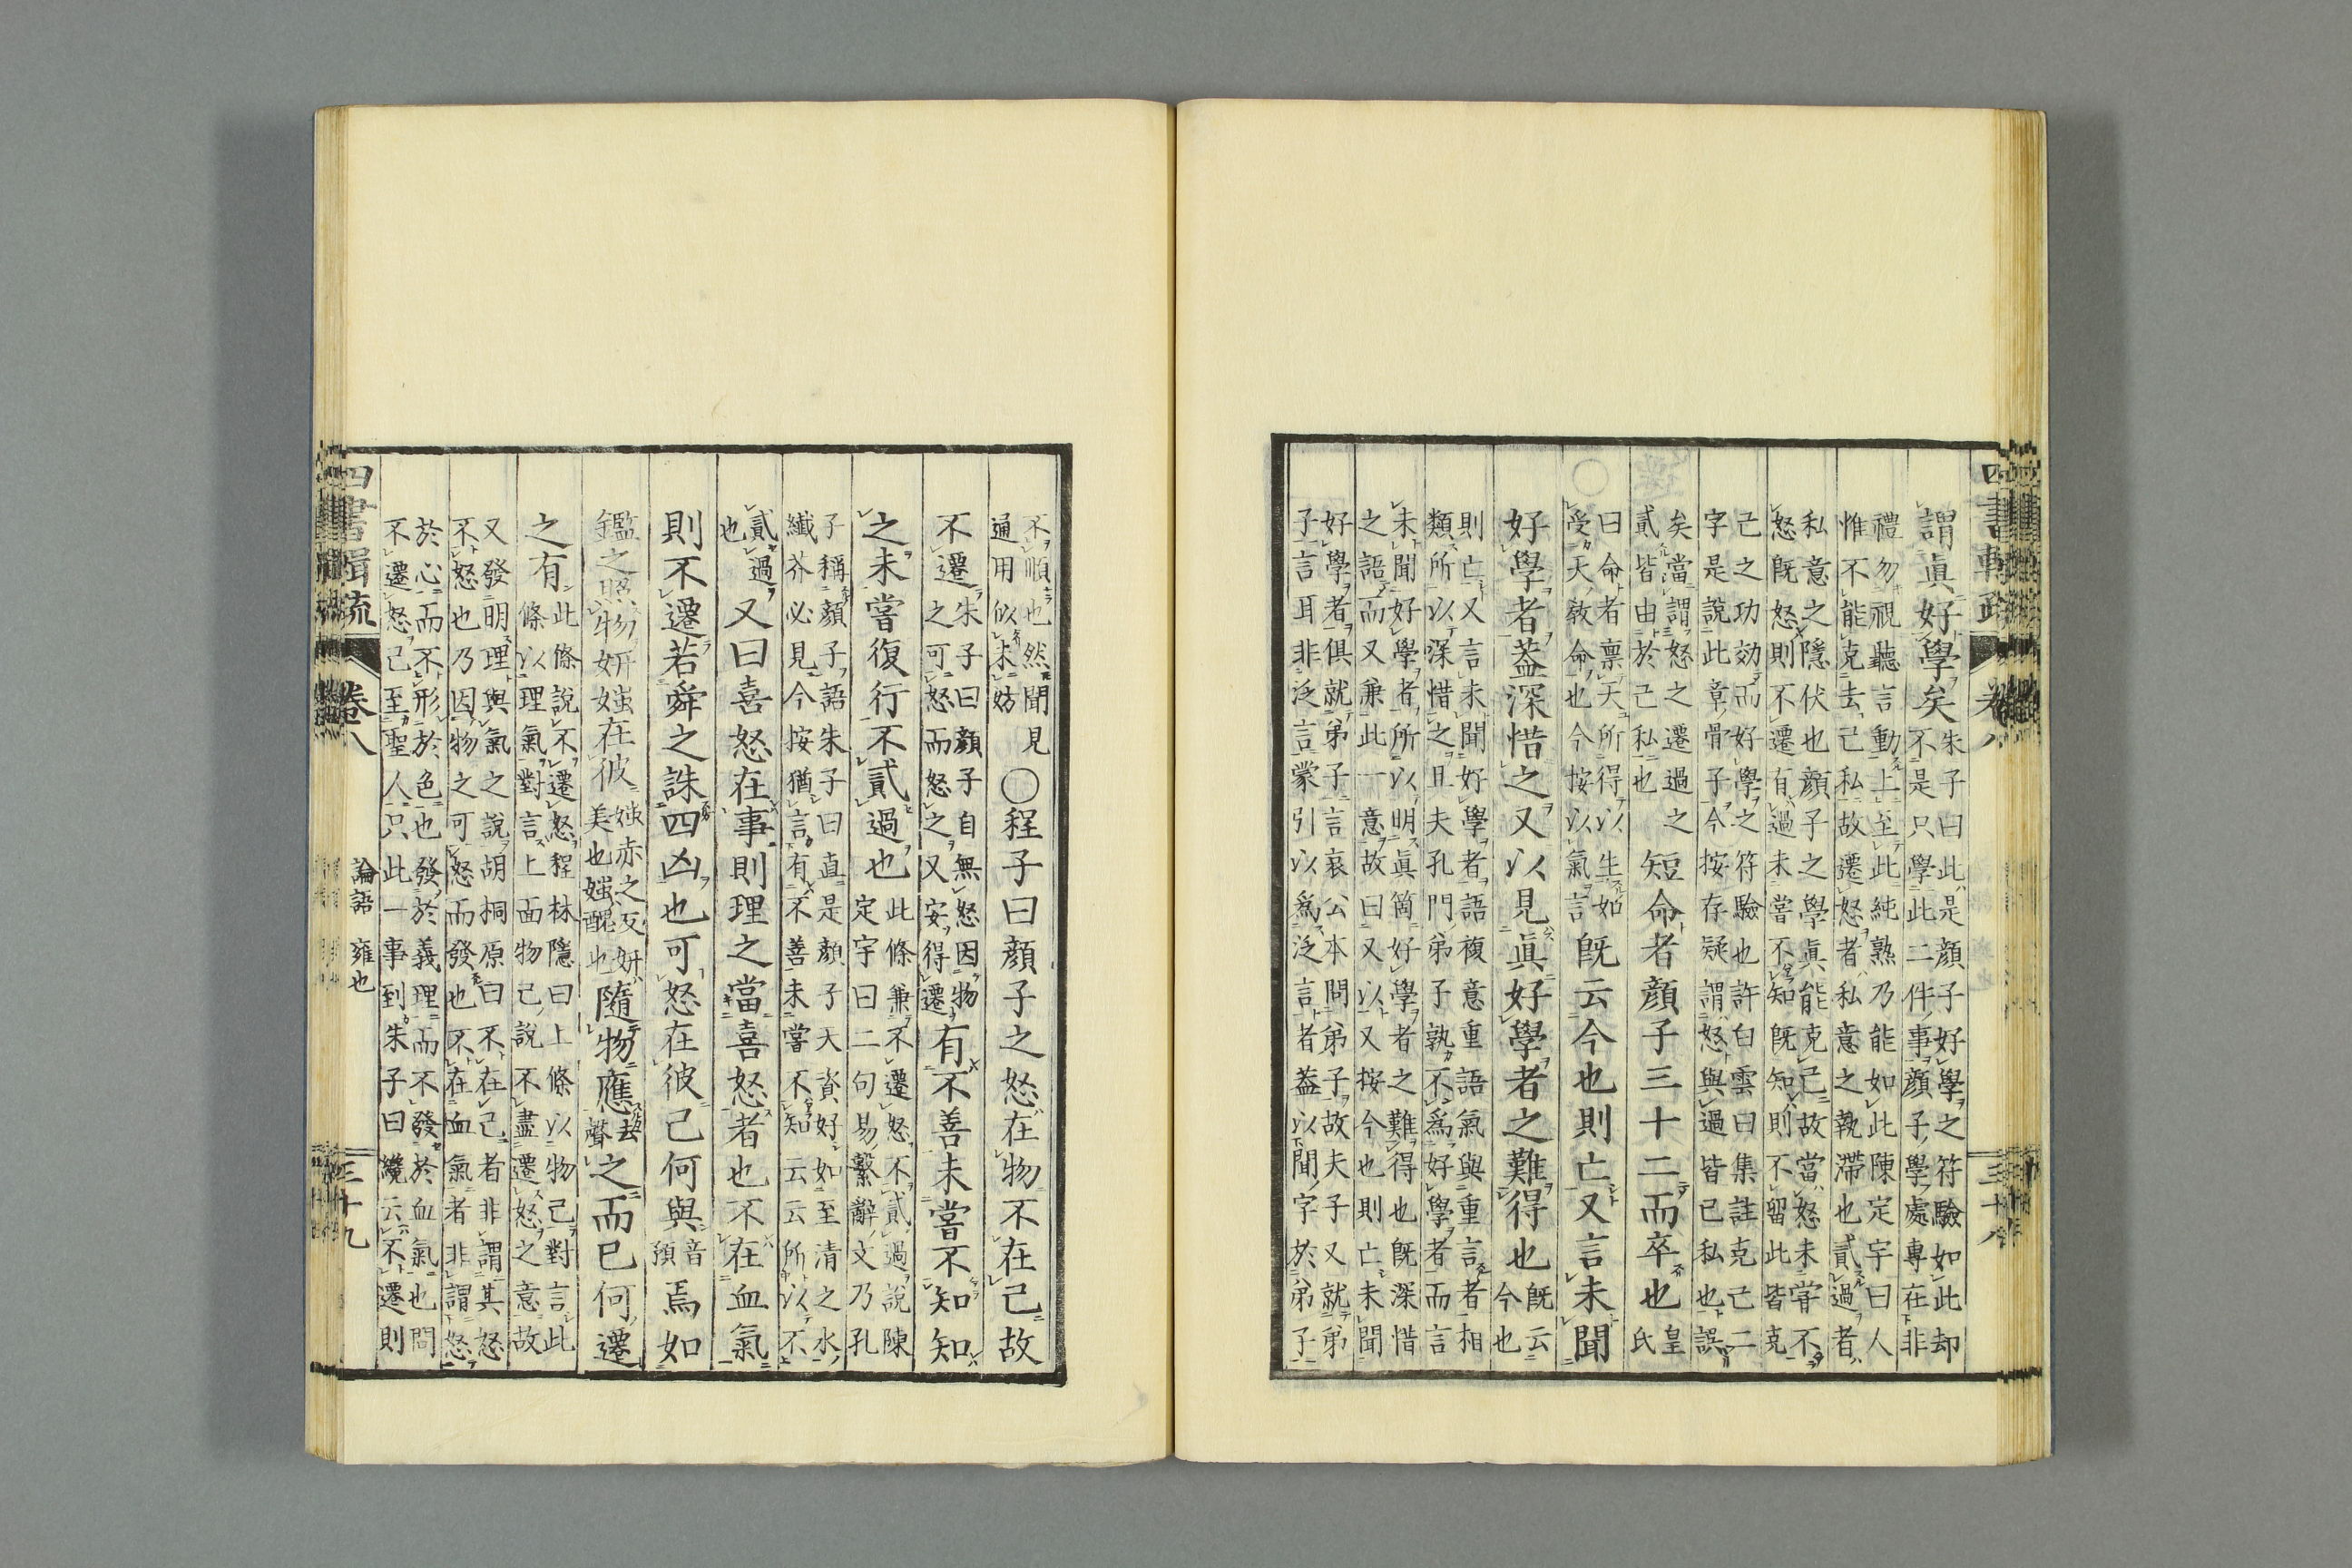 謂眞好學矣
朱子曰此是顔子好學之符驗如此却
不是只學此二件事顔子學處專在非
禮勿視聽言動上至此純熟乃能如此陳定宇曰人
惟不能克去己私故遷怒者私意之執滯也貳過者
私意之隱伏也顔子之學眞能克己故當怒未甞不
怒既怒則不遷有過未嘗不知既知則不留此皆克
己之功効而好學之符驗也許白雲曰集註克己二
字是說此章骨子今按存疑謂怒與過皆已私也誤
矣當謂怒之遷過之
貳皆由於己私也
短命者顔子三十二而卒也
皇
氏
曰命者禀天所得以生如
受天教命也今按以氣言
既云今也則亡又言未聞
好學者葢深惜之又以見眞好學者之難得也
既云
今也
則亡又言未聞好學者語複意重語氣與重言者相
類所以深惜之且夫孔門弟子孰不爲好學者而言
未聞好學者所以明眞箇好學者之難得也既深惜
之語而又兼此一意故曰又以又按今也則亡未聞
好學者俱就弟子言哀公本問弟子故夫子又就弟
子言耳非泛言蒙引以爲泛言者葢以聞字於弟子
四書輯疏
卷八
三十八
不順也然聞見
通用似未妨
○程子曰顔子之怒在物不在己故
不遷
朱子曰顔子自無怒因物
之可怒而怒之又安得遷
有不善未嘗不知知
之未嘗復行不貳過也
此條兼不遷怒不貳過說陳
定宇曰二句易繫辭文乃孔
子稱顔子語朱子曰直是顔子天資好如至清之水
纖芥必見今按猶言有不善未嘗不知云云所以不
貳過
也
又曰喜怒在事則理之當喜怒者也不在血氣
則不遷若舜之誅四凶也可怒在彼己何與
音
預
焉如
鑑之照物妍媸在彼
媸赤之反妍
美也媸醜也
隨物應
去
聲
之而已何遷
之有
此條說不遷怒程林隱曰上條以物己對言此
條以理氣對言上面物己說不盡遷怒之意故
又發明理與氣之說胡桐原曰不在己者非謂其怒
不怒也乃因物之可怒而發也不在血氣者非謂怒
於心而不形於色也發於義理而不發於血氣也問
不遷怒己至聖人只此一事到朱子曰纔云不遷則
四書輯疏
卷八
論語　雍也
三十九